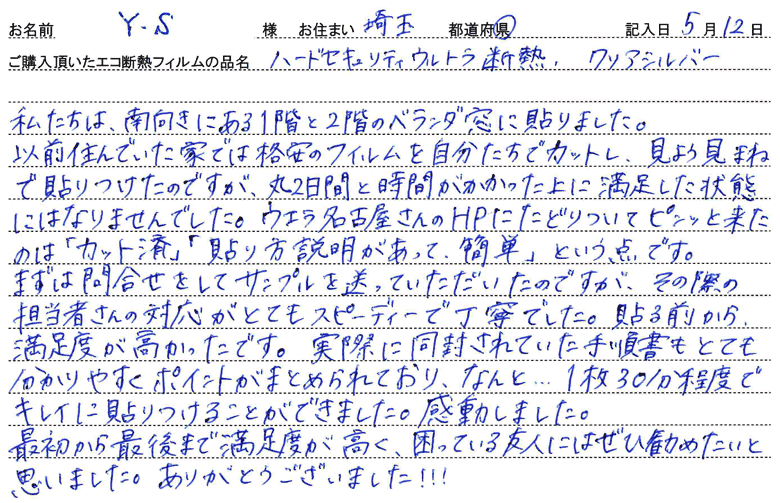 お名前 Y.S 様 お住まい 埼玉 都道府県 記入日 5 月 12 日
ご購入頂いたエコ断熱フィルムの品名 ハードセキュリティウルトラ断熱、クリアシルバー
私たちは、南向きにある1階と2階のベランダ窓に貼りました。
以前住んでいた家では格安のフィルムを自分たちでカットし、見よう見まね
で貼りつけたのですが、丸2日間と時間がかかった上に満足した状態
にはなりませんでした。ウエラ名古屋さんのHPにたどりついてピンッと来た
のは「カット済」「貼り方説明があって、簡単」という点です。
まずは問合せをしてサンプルを送っていただいたのですが、その際の
担当者さんの対応がとてもスピーディーで丁寧でした。貼る前から、
満足度が高かったです。実際に同封されていた手順書もとても
分かりやすくポイントがまとめられており、なんと…1枚30分程度で
キレイに貼りつけることができました。感動しました。
最初から最後まで満足度が高く、困っている友人にはぜひ勧めたいと
思いました。ありがとうございました!!!